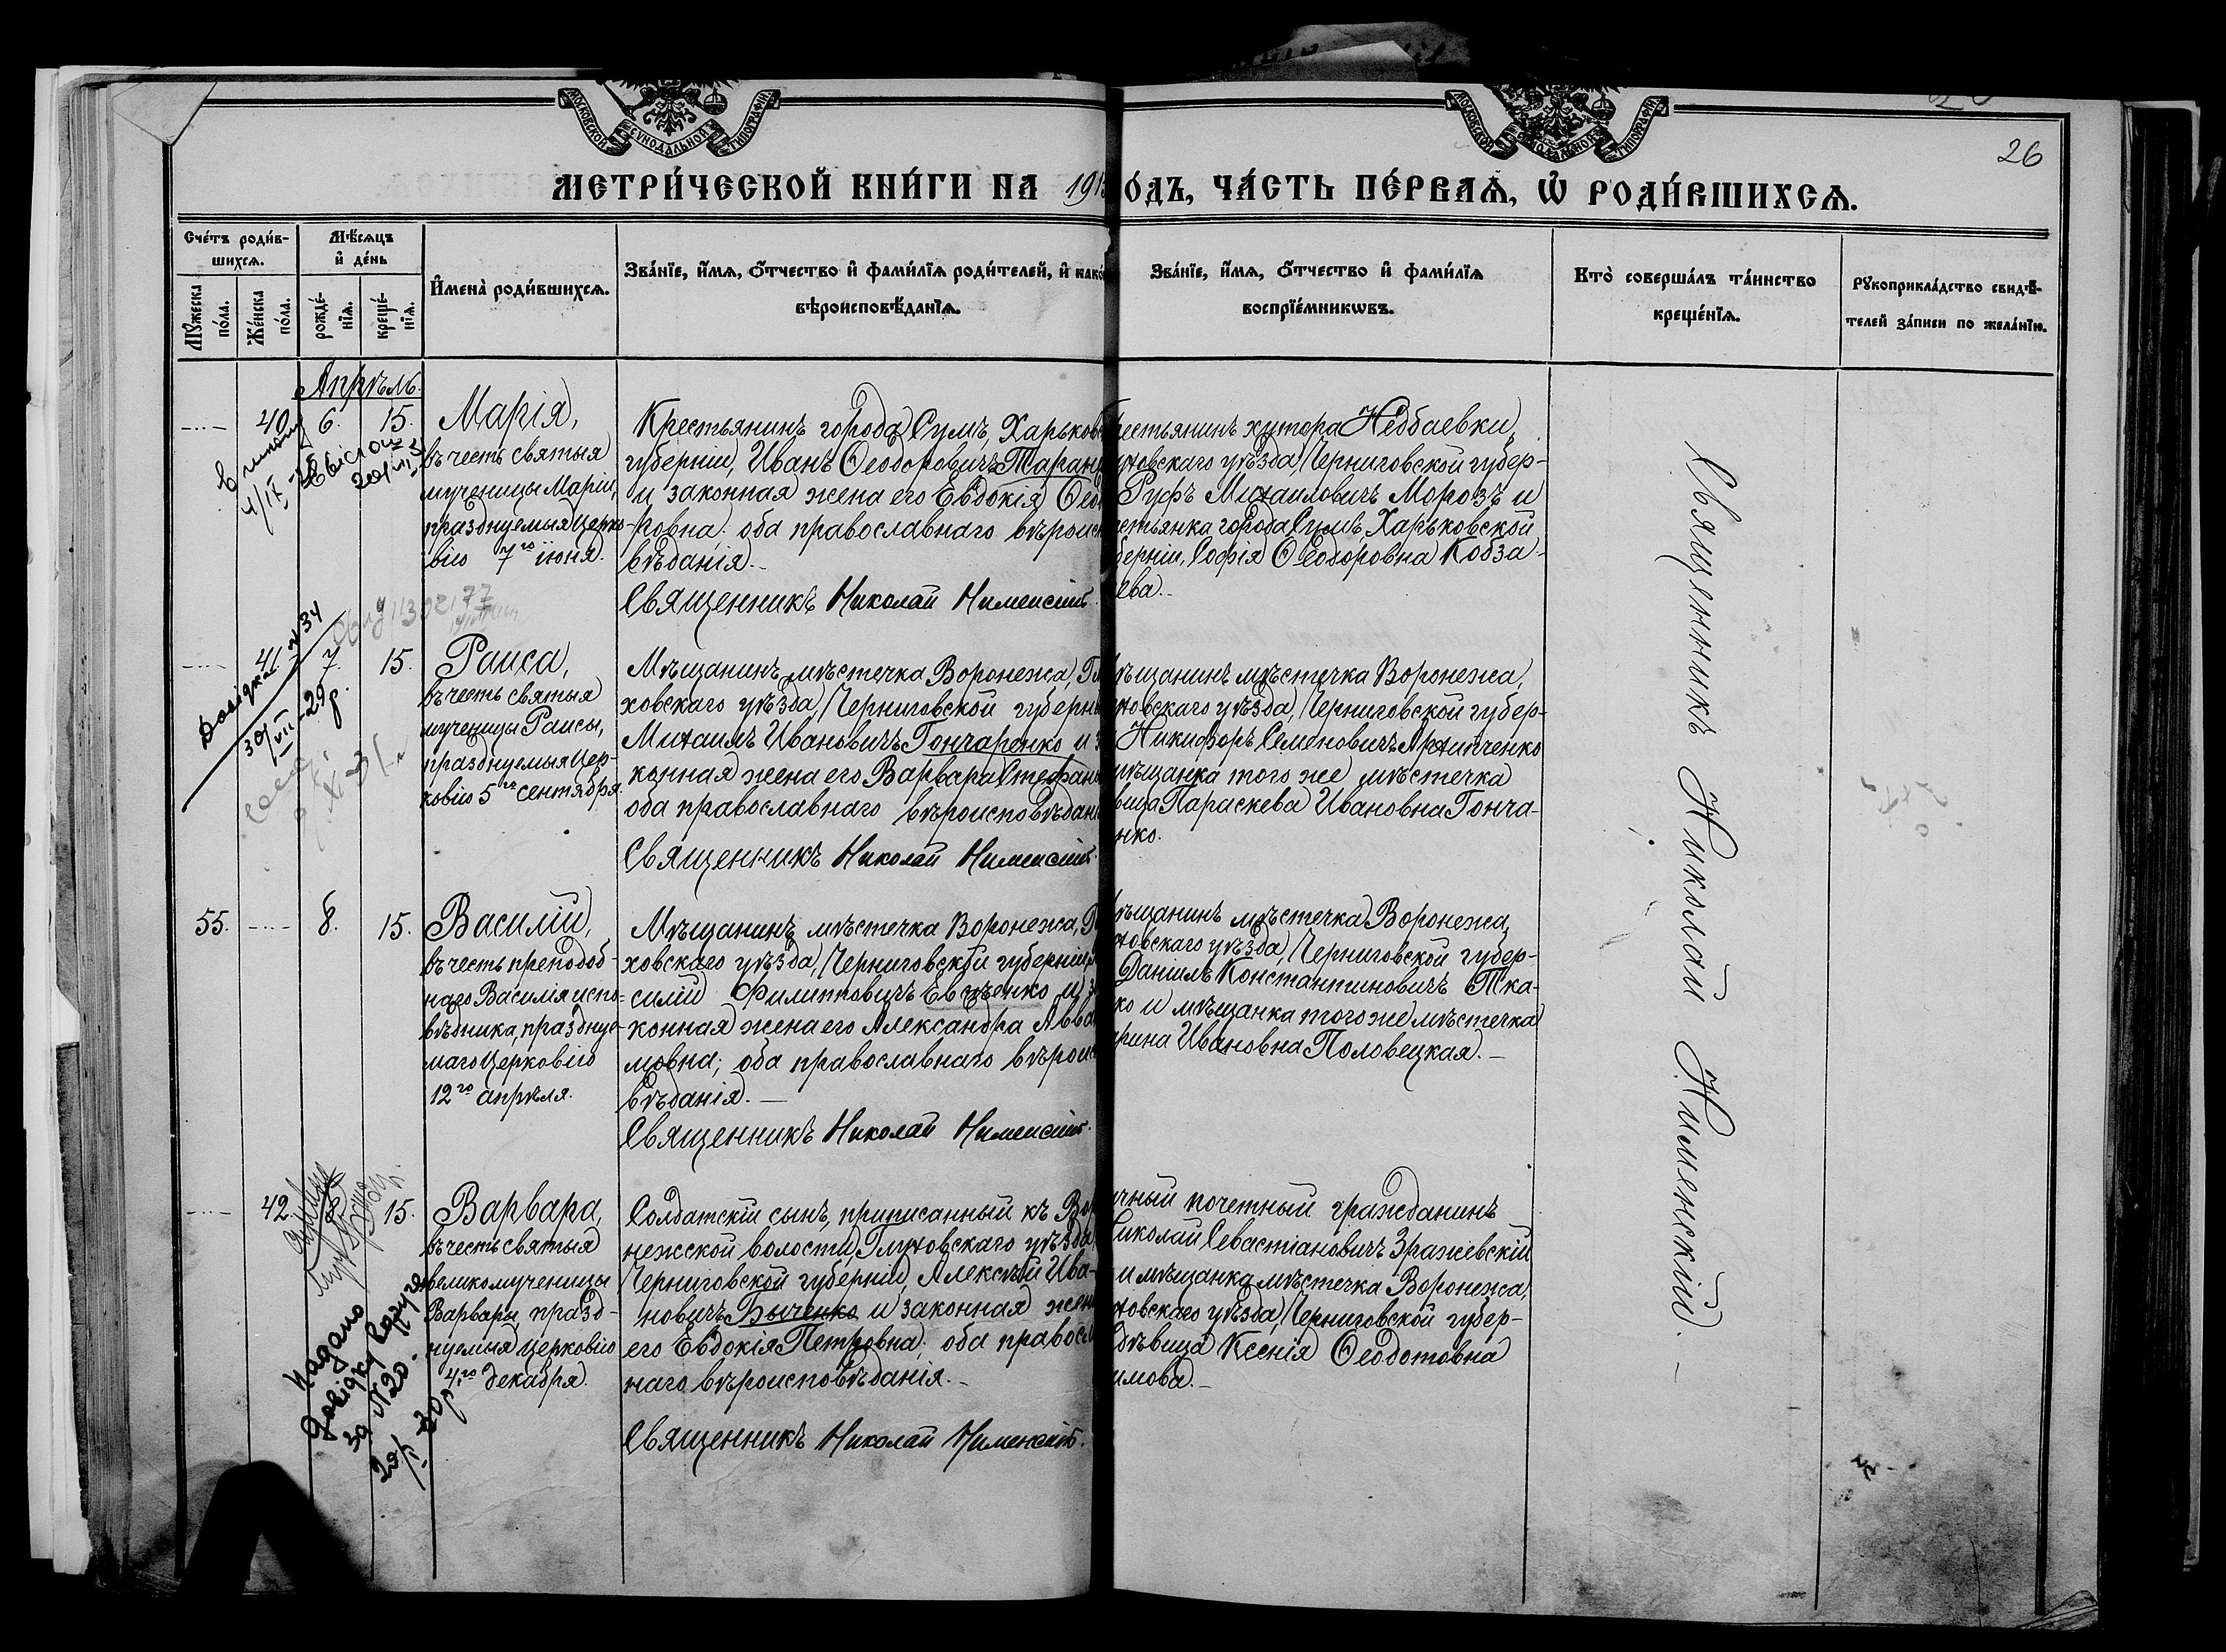 МОСКОВСКОЙ СѴНОДАЛЬНОЙ ТИПОГРАФІИ
МОСКОВСКОЙ СѴНОДАЛЬНОЙ ТИПОГРАФІИ
26
МЕТРИ́ЧЕСКОЙ КНИ́ГИ НА 191
О́ДЪ, ЧА́СТЬ ПЕ́РВАѦ, Ѡ҆ РОДИ́ВШИХСѦ.
Сче́тъ роди́в-
шихсѧ.
Мѣ́сѧцъ
и҆ де́нь
Мꙋ́жеска по́ла.
Же́нска по́ла.
рожде́-
нїѧ.
креще́-
нїѧ.
И҆мена̀ роди́вшихсѧ.
Зва́нїе, и҆́мѧ, ѻ҆́тчество и҆ фами́лїѧ роди́телей, и҆ како́
вѣроисповѣ́данїѧ.
Зва́нїе, и҆́мѧ, ѻ҆́тчество и҆ фами́лїѧ
воспрїе́мникѡвъ.
Кто̀ соверша́лъ та́инство
креще́нїѧ.
Рꙋкоприкла́дство свидѣ́-
телей за́писи по жела́нїю.
Апрѣль.
40. 6. 15.
Марія,
въ честь святыя
мученицы Маріи,
празднуемыя Церко-
вію 7го іюня.
Крестьянинъ города Сумъ, Харьков
губерніи, Иванъ Ѳеодоровичъ Таран
и законная жена его Евдокія Ѳео
ровна; оба православнаго вѣроис
вѣданія.-
Священникъ Николай Нименскій.
рестьянинъ хутора Недбаевки,
уховскаго уѣзда, Черниговской губер-
Руфъ Михаиловичъ Морозъ и
естьянка города Сумъ, Харьковской
берніи, Софія Ѳеодоровна Кобза-
ева.-
Довідка №34
30/VII-29 р.
41. 7. 15.
Раиса,
въ честь святыя
мученицы Раисы,
празднуемыя Цер-
ковію 5го сентября.
Мѣщанинъ мѣстечка Воронежа, Гл
ховскаго уѣзда, Черниговской губерн
Михаилъ Ивановичъ Гончаренко и з
конная жена его Варвара Стефан
оба православнаго вѣроисповѣдан
Священникъ Николай Нименскій.
ѣщанинъ мѣстечка Воронежа,
уховскаго уѣзда, Черниговской губер-
Никифоръ Семеновичъ Архипченко
мѣщанка того же мѣстечка
вица Параскева Ивановна Гонча-
нко.
55. 8. 15.
Василій,
въ честь преподоб-
наго Василія испо-
вѣдника, праздну-
маго Церковію
12го апрѣля.
Мѣщанинъ мѣстечка Воронежа, Г
ховскаго уѣзда, Черниговской губерніи,
силій Филипповичъ Евсѣенко и з
конная жена его Александра Авва
мовна; оба православнаго вѣроис
вѣданія.-
Священникъ Николай Нименскій.
ѣщанинъ мѣстечка Воронежа,
уховскаго уѣзда, Черниговской губер-
Даніилъ Константиновичъ Тка-
ко и мѣщанка того же мѣстечка
рина Ивановна Половецкая.-
42. 15.
Варвара,
въ честь святыя
великомученицы
Варвары, празд-
нуемыя Церковію
4го декабря.
Солдатскій сынъ, приписанный къ Вор
нежской волости, Глуховскаго уѣзда,
Черниговской губерніи, Алексѣй Ива-
новичъ Быченко и законная жен
его Евдокія Петровна; оба правосл
наго вѣроисповѣданія.-
Священникъ Николай Нименскій.
ичный почетный гражданинъ
Николай Севастіановичъ Зражевскій
и мѣщанка мѣстечка Воронежа,
уховскаго уѣзда, Черниговской губер-
дѣвица Ксенія Ѳеодотовна
имова.-
Надано
довідку
за №20.
Священникъ Николай Нименскій.-